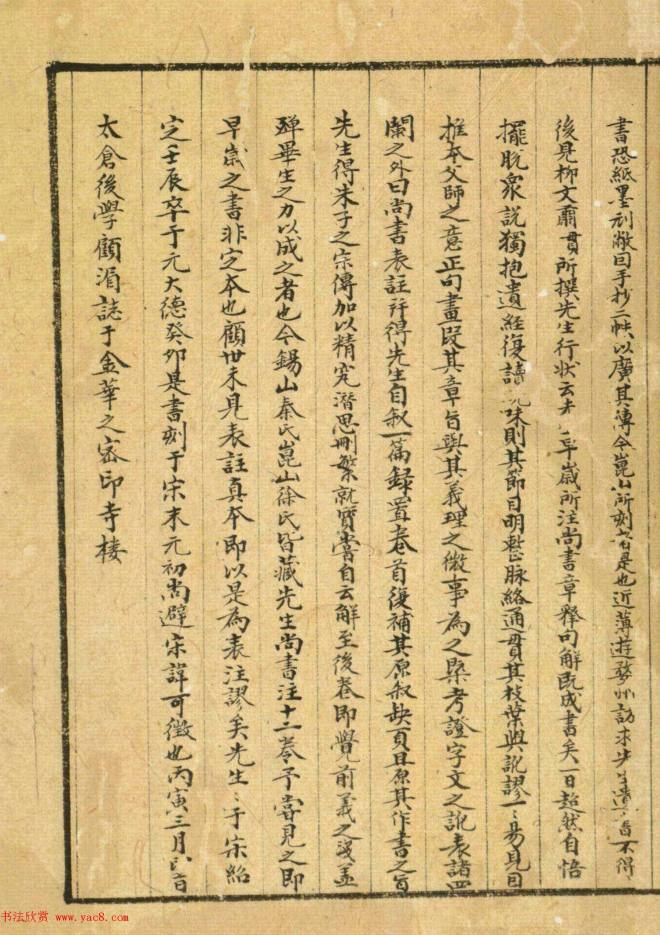 書恐紙墨刓敝因手抄二帙以廣其傳今崑山所刻者是也近薄遊婺州訪求先生遺書不得
後見柳文肅貫所撰先生行狀云早歲所注尚書章釋句解既成書矣一日超然自悟
擺脫衆說獨抱遺經復讀味則其節目明整脉絡通貫其枝葉與訛謬一ミ易見因
推本父師之意正句畫段其章旨與其義理之微事為之槩考證字文之訛表諸四
闌之外曰尚書表註并得先生自叙一篇録置卷首復補其原叙缺頁且原其作書之旨
先生得朱子之宗傳加以精究潛思刪繁就實嘗自云解至後卷即覺前義之淺盖
殫畢生之力以成之者也今錫山秦氏崑山徐氏皆藏先生尚書注十二卷予嘗見之即
早歲之書非定本也顧世未見表註真本即以是為表注謬矣先生ミ于宋紹
定壬辰卒于元大德癸卯是書刻于宋末元初尚避宋諱可徵也丙寅三月
太倉後學顧湄誌于金華之密印寺樓
书法欣赏 www.yac8.com